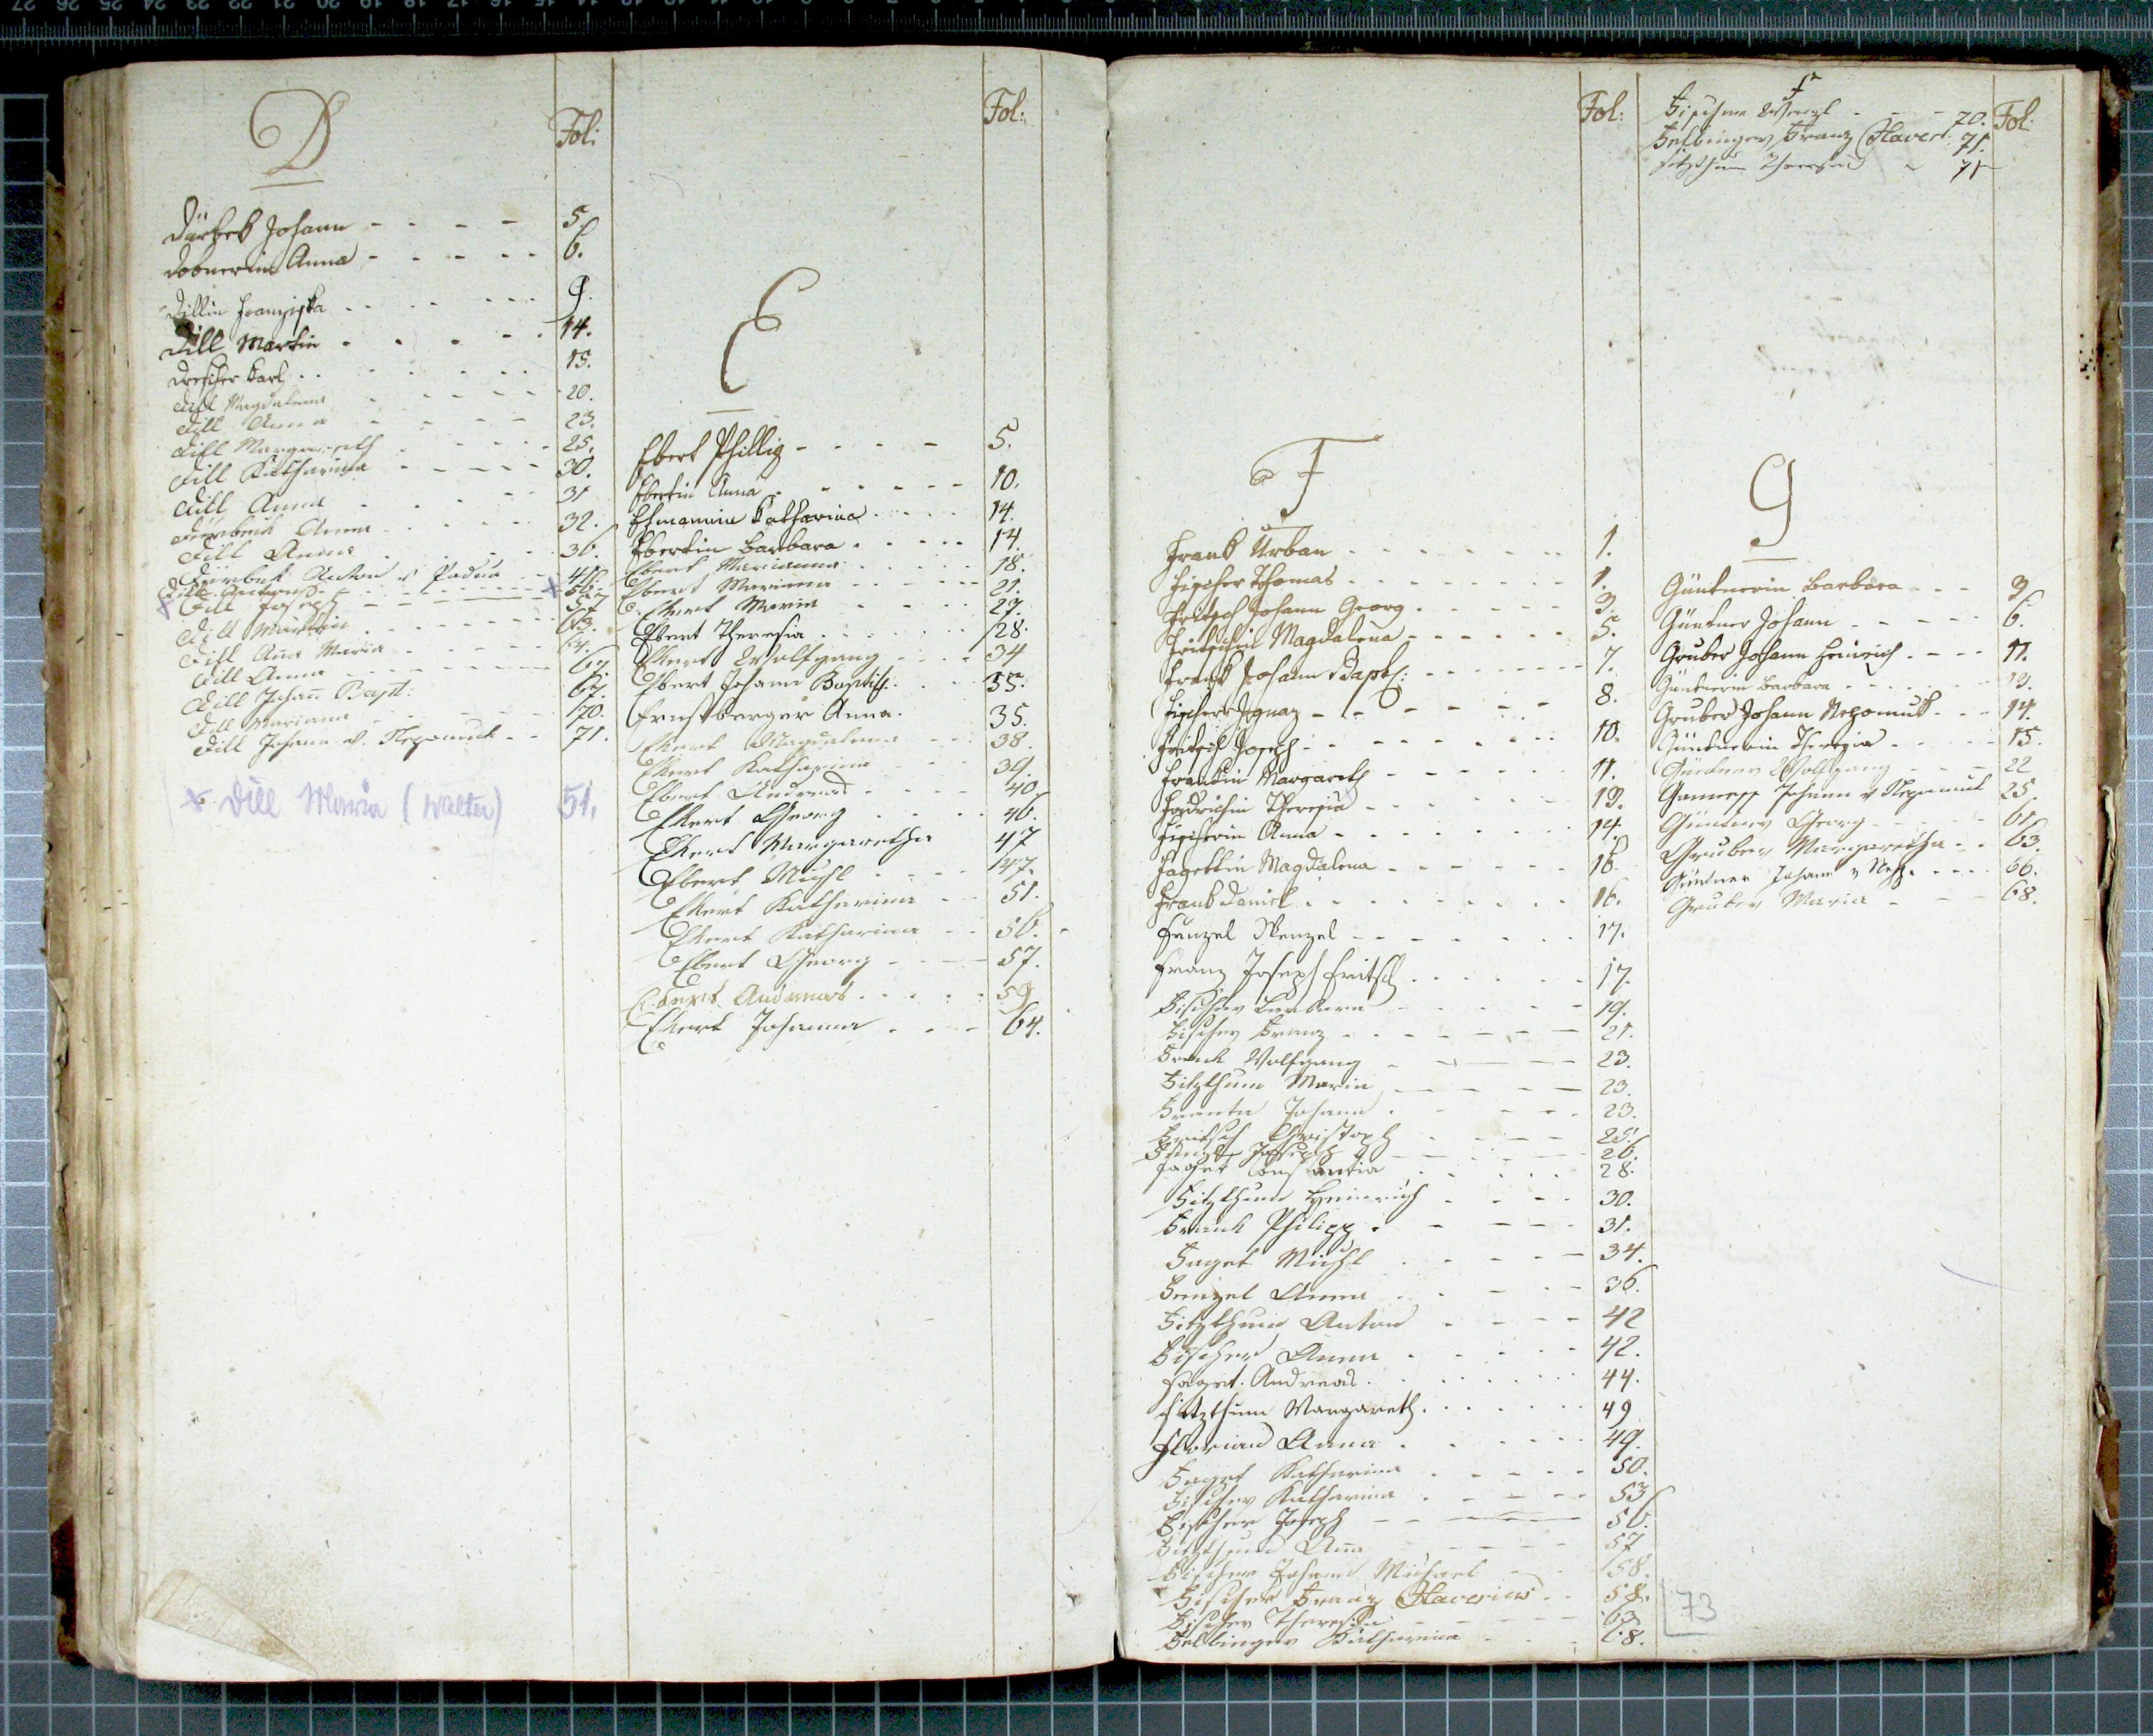 D
Fol:
Johann - - - - 5.
Dobnerin Anna - - - - - 6.
Dillin Franziska - - - - - - 9.
Dill Martin - - - - - 14.
Drescher Karl - - - - - - 15.
Dill Magdalena - - - - - 20.
Dill Anna - - - - 23.
Dill Margareth - - - - 25.
Dill Katharina - - - - - 30.
Dill Anna - - - - 31
Anna - - - - 32.
Dill Anna - - - - 36.
Anton v Padua - - 41.
Dill
Dill Joseph - - - - 57
Dill Martin - - - - 63.
Dill Ana Maria - - - - 64.
Dill Anna - - - - 67.
Dill Johan Bapt: 67.
Dill Mariana - - - - 70.
Dill Johann v. Nepomuck - - 71.
x Dill Maria (Walter) 51.
Fol:
E
Ebert Phillip - - - - 5.
Ebertin Anna - - - - - - 10.
Katharina - - - - 14.
Ebertin Barbara - - - - - 14.
Ebert Marianna - - - - - 18.
Ebert - - - - 21.
Ekert Maria - - - - 27.
Ebert Theresia - - - - 28.
Ekert Wolfgang - - - 34
Ebert Johann Baptist - - - 35.
Ernstberger Anna. 35.
Ekert Magdalena - - - 38.
Ekert Katharina - - - 39.
Ebert Andreas - - - - 40.
Ekert Georg - - - - 46.
Ekert Margaretha 47
Ebert Michl - - - - 47.
Ekert Katharina - - - 51.
Ekert Katharina - - 56.
Ebert Georg - - - 57.
Andreas - - - - - 59
Ekert Johanna - - - - 64.
Fol:
F
Frank Urban - - - - - - - - 1.
Fischer Thomas - - - - - - - - 1.
Fritsch Johann Georg - - - - - - 3.
Fritschin Magdalena - - - - - - 5.
Frank Johann Bapt: - - - - - - - 7.
Fischer Ignaz - - - - - - - 8.
Fritsch Joseph - - - - - - - - 10.
Frankin Margareth - - - - - - 11.
Theresia - - - - - - - 13.
Fischerin Anna - - - - - - - - 14.
Fagettin Magdalena - - - - - 16.
Frank Daniel - - - - - - - - 16.
Wenzel - - - - - - - 17.
Franz Joseph Fritsch - - - - - - 17.
Fischer Barbara - - - - - 19.
Fischer Franz - - - - - - - 21.
Frank Wolfgang - - - - - 23.
Fitzthum Maria - - - - - 23.
Johann - - - - - 23.
Fritsch Christoph - - - - - 25.
Joseph - - - - - 26.
Faget Constantia - - - - - 28.
Fitzthum Heinrich - - - - 30.
Frank Philipp - - - - - 31.
Faget Michl - - - - - 34.
Anna - - - - 36.
Fitzthum Anton - - - - 42
Fischer Anna - - - - - 42.
Faget Andreas - - - - - - - 44.
Fitzthum Margareth - - - - - - 49
Florian Anna - - - - - 49.
Faget Katharina - - - - - 50.
Fischer Katharina - - - - - 53
Fischer Joseph - - - - - 56.
Fitzthum Ana - - - - - 57
Fischer Johann Michael - - 58.
Fischer Franz Xaverius - - 58.
Fischer Theresia - - - - 63.
Katharina - - - - 68.
F
Fol:
Fischer Wenzl - - - 70.
Franz Xaver: 71.
Fitzthum Theresia - 71
G
Güntnerin Barbara - - - 3
Güntner Johann - - - - - 6.
Gruber Johann Heinrich - - - 11.
Güntnerin Barbara - - - - - - 13.
Gruber Johann Nepomuk - - - 14.
Güntnerin Theresia - - - - 15.
Güntner Wolfgang - - - 22
Johann v Nepomuk 25.
Güntner Georg - - - - 61.
Gruber Margaretha - - 63.
Güntner Johann v Nep. - - - - 66.
Gruber Maria - - - 68.
73